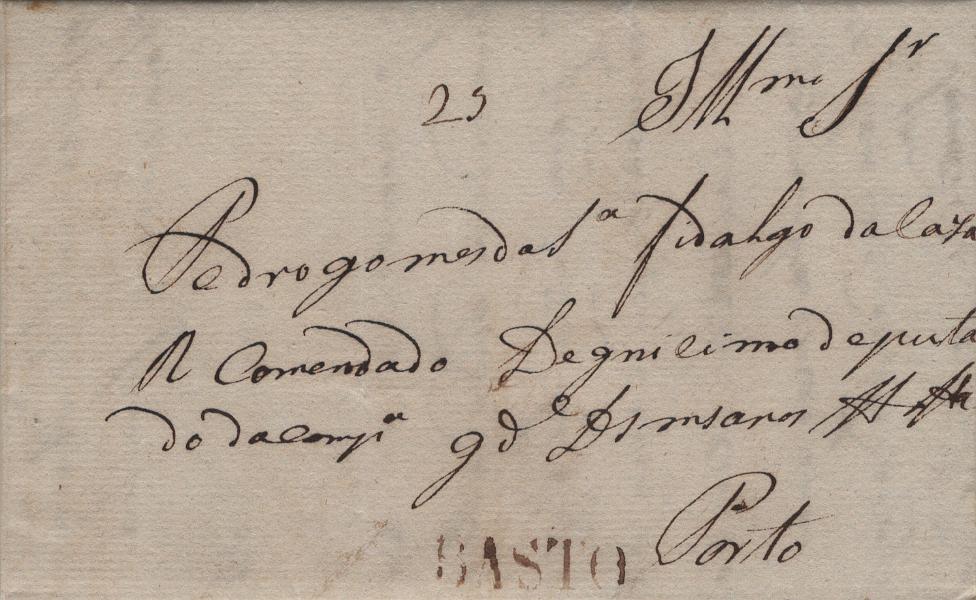 25 Illmo Sr
Pedro gomes da Sa fidalgo da Caza
R Comendado Degnicimo deputa
do da compa gde Ds ms anos
Porto
BASTO